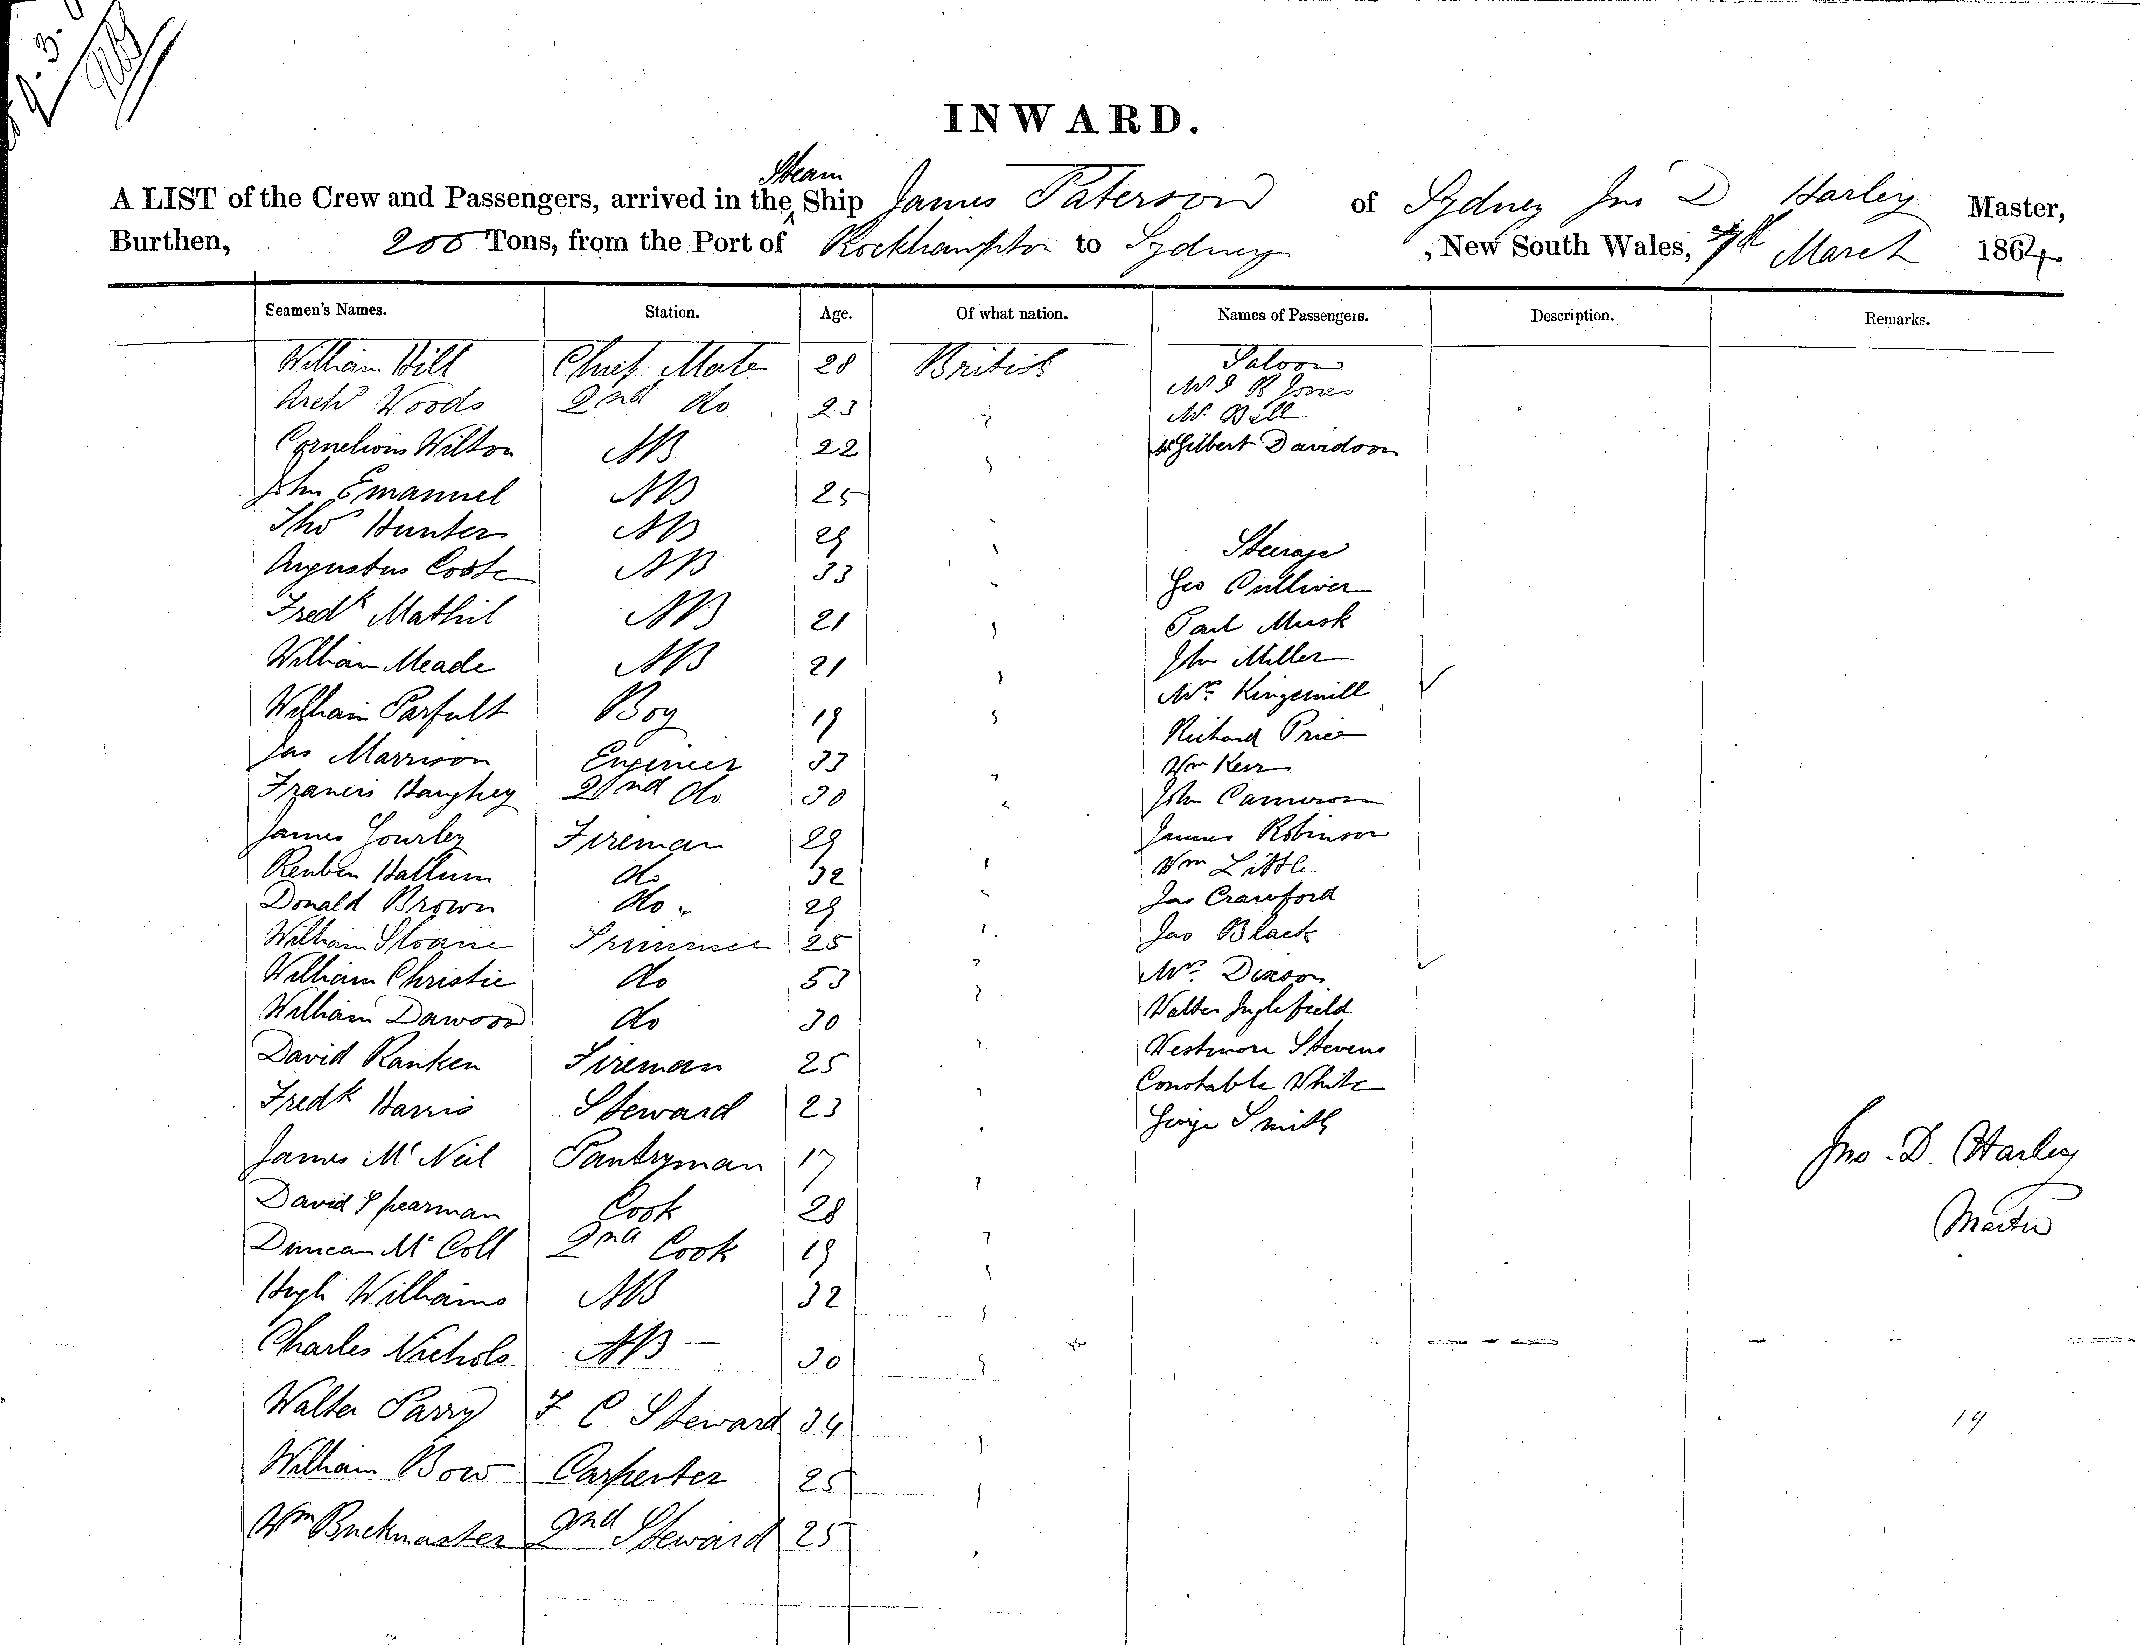 9. 3.
INWARD.
A LIST of the Crew and Passengers, arrived in the Steam Ship James Paterson of Sydney Jno D Harley Master,
Burthen, 200 Tons, from the Port of Rockhampton to Sydney , New South Wales, 7th March 1864
Seamen's Names. Station. Age. Of what nation. Names of Passengers. Description. Remarks.
William Hill Chief Mate 28 British Saloon
Mr J R Jones
Archd Woods 2nd do 23 " Mr. Bell
Cornelious Wilton AB 22 " Mr Gilbert Davidson
John Emanuel AB 25 "
Thos Hunter AB 29 " Steerage
Augustus Coote AB 33 " Geo Culliver
Fredk Mathil AB 21 " Paul Musk
William Meade AB 21 " John Miller
Mrs Kingsmill
William Parfult Boy 19 " Richard Price
Jas Marrison Engineer 33 " Wm Kerr
Francis Haughey 2nd do 30 " John Cameron
James Gourley Fireman 29 " James Robinson
Reuben Hallum do 32 " Wm Little
Donald Brown do 29 " Jas Crawford
William Sloane Trimmer 25 " Jas Black
William Christie do 53 " Mrs. Dixson
William Dawson do 30 " Walter Inglefield
David Ranken Fireman 25 " Westmore Stevens
Fredk Harris Steward 23 " Constable White
George Smith
James McNeil Pantryman 17 " Jno. D. Harley
David Spearman Cook 28 " Master
Duncan McColl 2nd Cook 19 "
Hugh Williams AB 32 "
Charles Nichols AB 30 "
Walter Parry F C Steward 34 " 19
William Bow Carpenter 25 "
Wm Buckmaster 2nd Steward 25 "